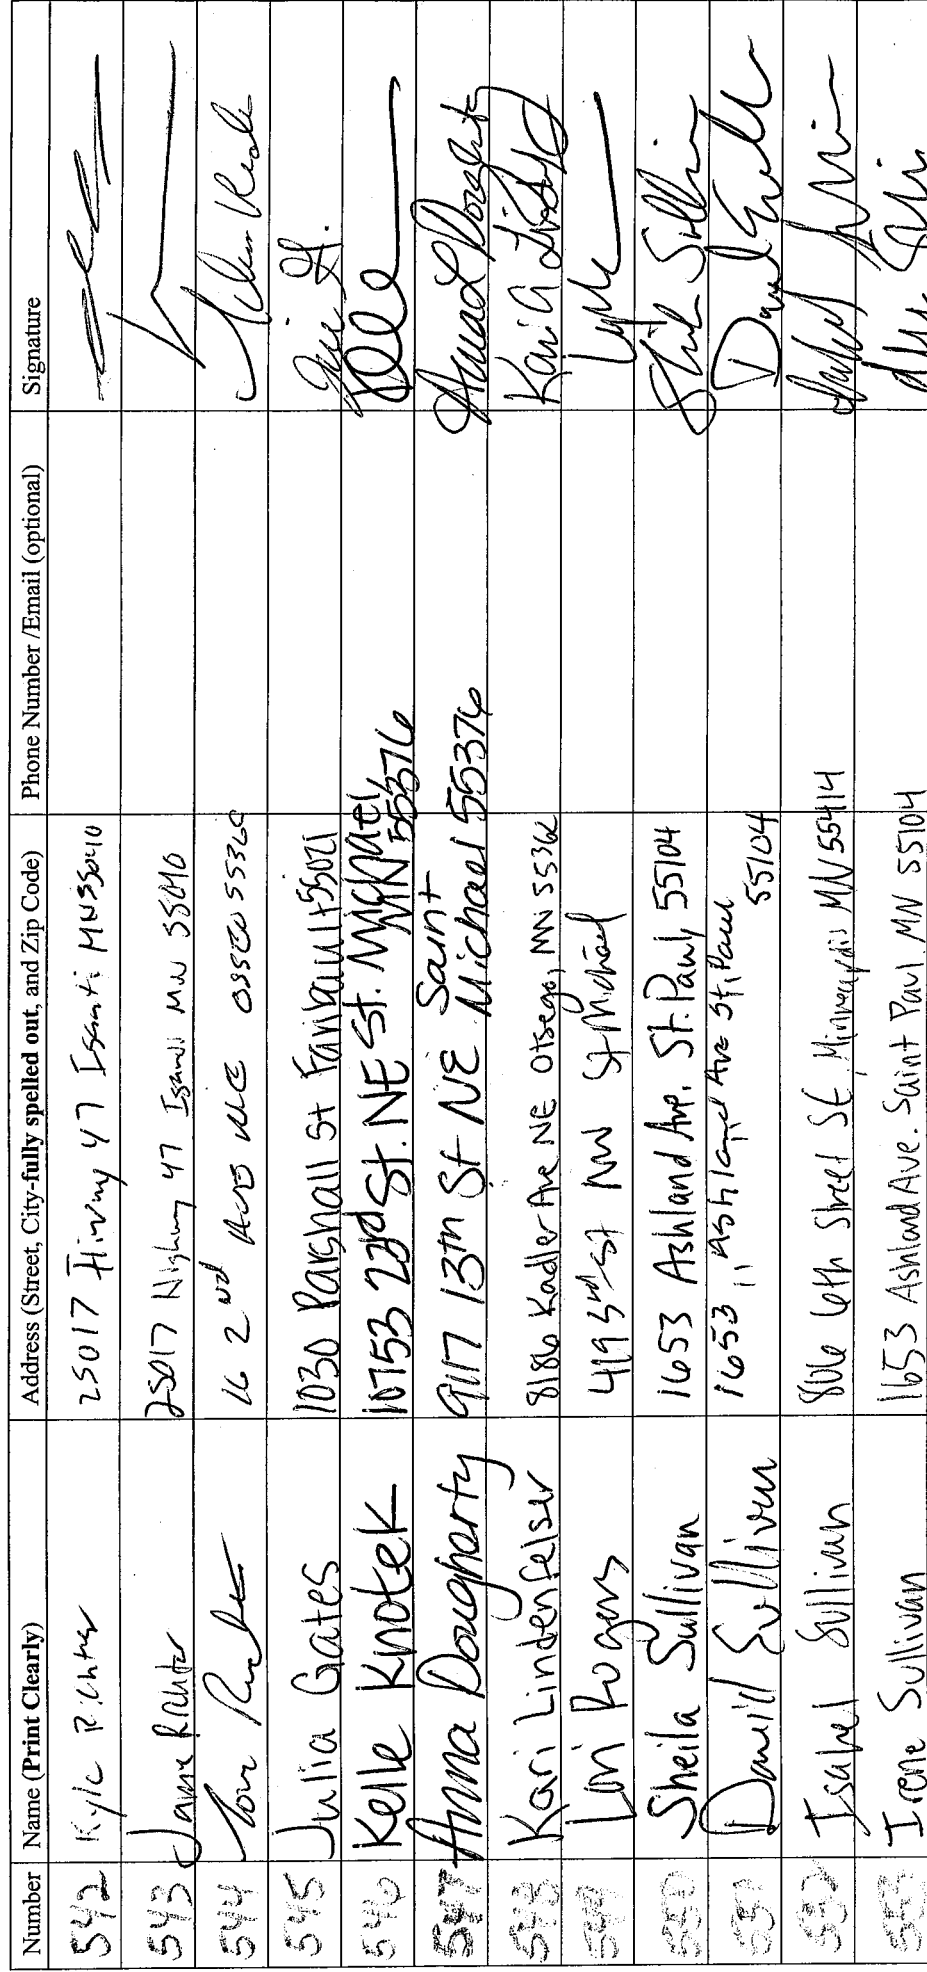 Number Name (Print Clearly) Address (Street, City-fully spelled out, and Zip Code) Phone Number /Email (optional) Signature
542 Kyle Richter 25017 Hiway 47 Isanti MN 55040
543 Jame Richter 25017 Highway 47 Isanti MN 55040
544 Tom 16 2nd Ave NE OSSEO 5536
545 Julia Gates 1030 Parshall St Faribault 55021
546 Kelle Knotek 10753 23rd St. NE St. Michael, MN 55376
547 Anna Dougherty 9117 13th St NE Saint Michael 55376 Anna L Dougherty
548 Kari Lindenfelser 8186 Kadler Ave NE Otsego, MN 55362 Kari A
549 Lori Rogers 419 3rd St NW St Michael
550 Sheila Sullivan 1653 Ashland Ave. St. Paul, 55104
551 David Sullivan 1653 " Ashland Ave St. Paul 55104
552 Isabel Sullivan 806 6th Street SE Minneapolis MN 55414
553 Irene Sullivan 1653 Ashland Ave. Saint Paul, MN 55104